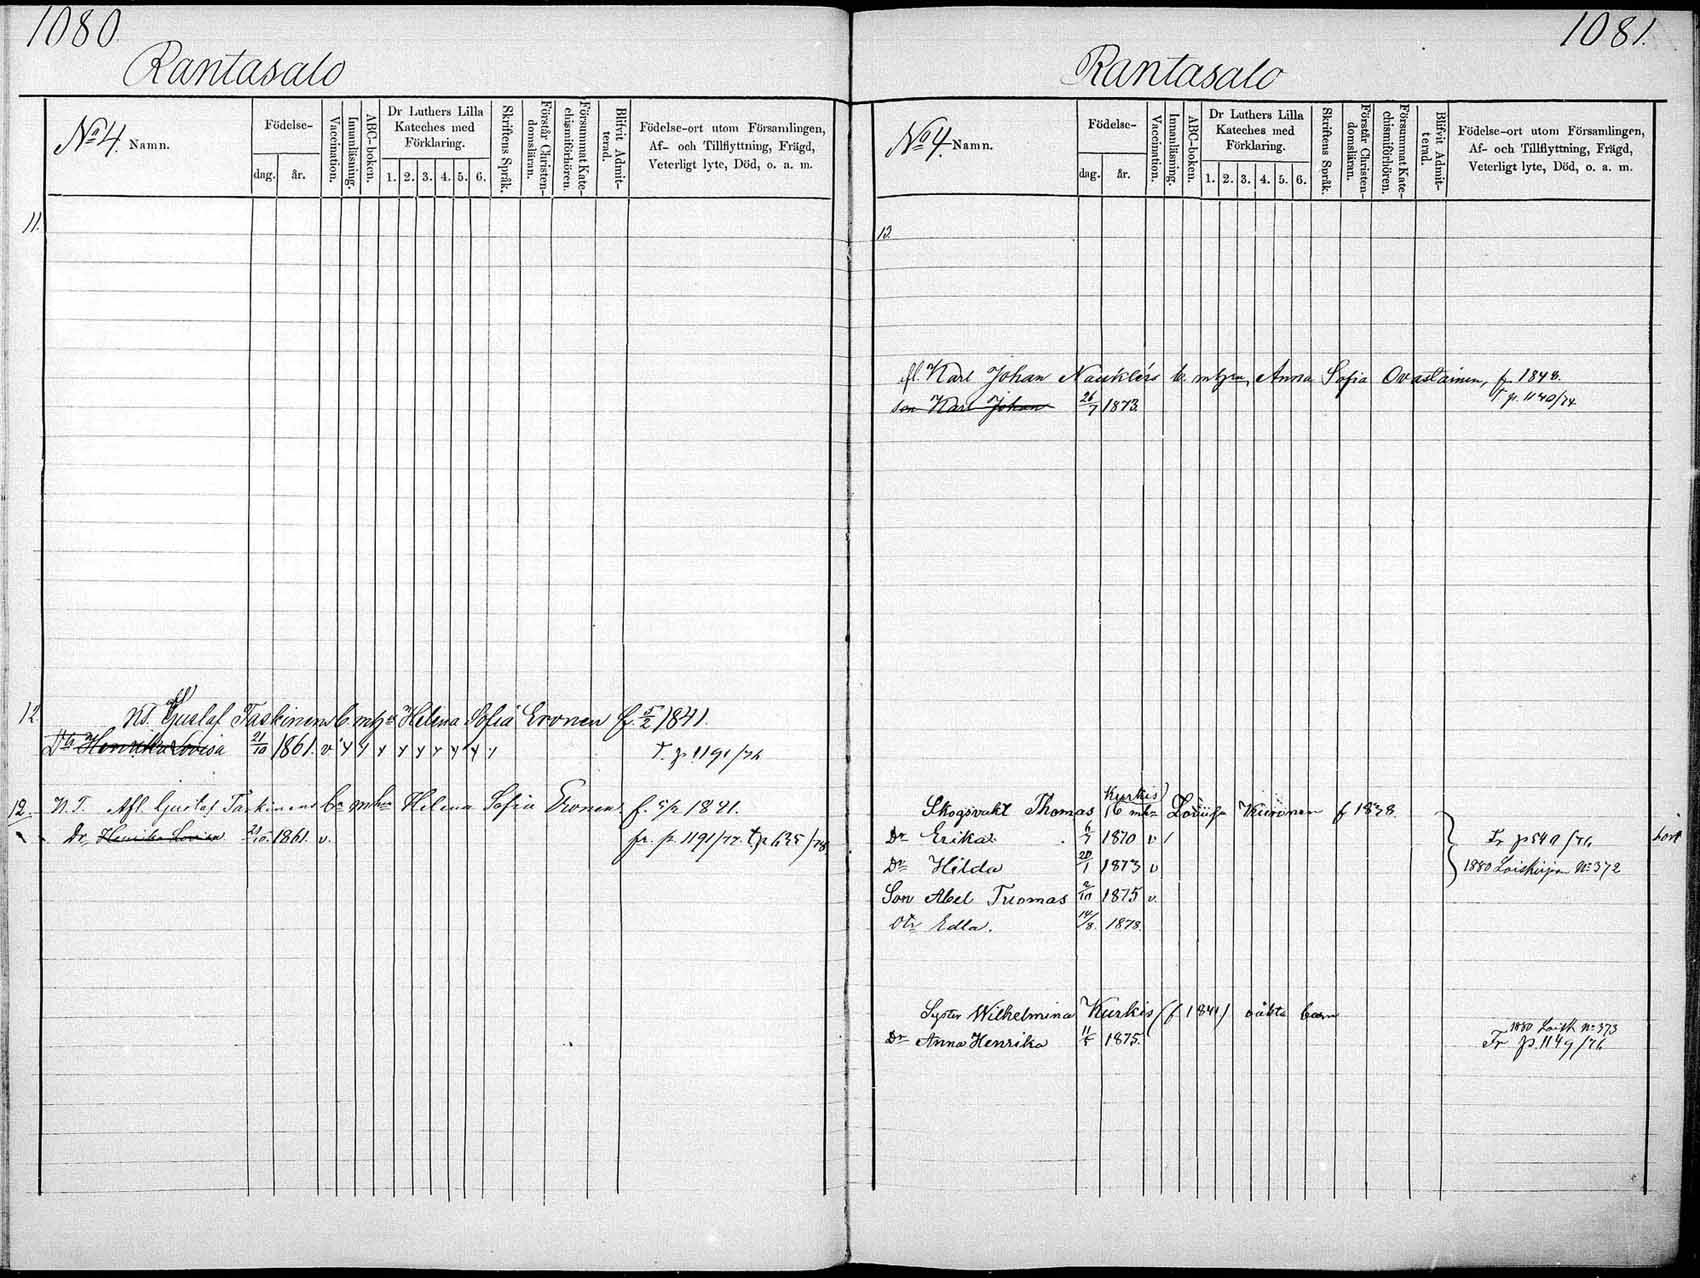 1080
Rantasalo
No 4. Namn.
Födelse-
dag. år.
Vaccination.
Innanläsning.
ABC-boken.
Dr Luthers Lilla Kateches med Förklaring.
1. 2. 3. 4. 5. 6.
Skriftens Språk.
Förstår Christendomsläran.
Försummat Katechismiförhören.
Blifvit Admitterad.
Födelse-ort utom Församlingen,
Af- och Tillflyttning, Frägd,
Veterligt lyte, Död, o. a. m.
11.
12 afl Gustaf Taskinens b. m. Helena Sofia Eronen f. 5/2 1841.
Dr Henrika Lovisa 21/10 1861. v T. p. 1191/76
12. N.T. Afl. Gustaf Taskinens Helena Sofia Eronen f. 5/2 1841.
Dr. Henrika Lovisa 21/10. 1861. v. fr. p. 1191/77. t p 635/78
1081.
Rantasalo
No 4. Namn.
Födelse-
dag. år.
Vaccination.
Innanläsning.
ABC-boken.
Dr Luthers Lilla Kateches med Förklaring.
1. 2. 3. 4. 5. 6.
Skriftens Språk.
Förstår Christendomsläran.
Försummat Katechismiförhören.
Blifvit Admitterad.
Födelse-ort utom Församlingen,
Af- och Tillflyttning, Frägd,
Veterligt lyte, Död, o. a. m.
13.
afl. Karl Johan Nauklérs b. Anna Sofia Ovaskainen, f. 1848.
son Karl Johan 26/7 1873. T p. 1140/74
Kurkis
Skogsvakt Thomas Kuronen f 1838.
Dr Erika. 6/7 1870 v Fr p 549/76 bort
Dr Hilda 20/1 1873 v 1880 No 372
Son Abel Tuomas 2/10 1875 v.
Dtr Edla. 14/8. 1878.
Syster Wilhelmina Kurkis (f 1841) oäkta barn
1880 No 373
Dr Anna Henrika 1875. Fr p. 1149/76